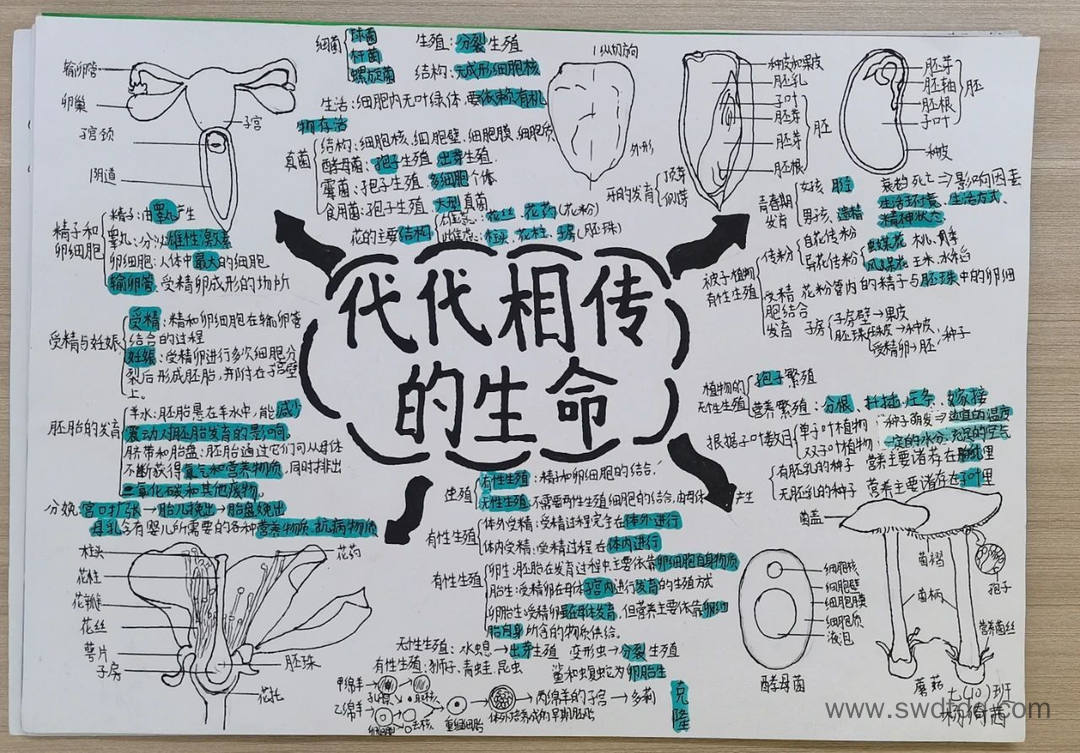 代代相传
的生命
输卵管
卵巢
子宫颈
子宫
阴道
精子和
卵细胞
精子:由睾丸产生
睾丸:分泌雄性激素
卵细胞:人体中最大的细胞
输卵管:受精卵成形的场所
受精与妊娠
受精:精和卵细胞在输卵管
结合的过程
妊娠:受精卵进行多次细胞分
裂后形成胚胎,并附在子宫壁
上。
胚胎的发育
羊水:胚胎悬在羊水中,能减少
震动对胚胎发育的影响。
脐带和胎盘:胚胎通过它们可从母体
不断获得氧气和营养物质,同时排出
二氧化碳和其他废物。
分娩:宫口扩张→胎儿娩出→胎盘娩出
母乳:含有婴儿所需要的各种营养物质、抗病物质
柱头
花柱
花瓣
花丝
萼片
子房
花药
胚珠
花托
细菌
球菌
杆菌
螺旋菌
生殖:分裂生殖
结构:无成形细胞核
生活:细胞内无叶绿体,要依赖有机
物存活
真菌
结构:细胞核、细胞壁、细胞膜、细胞质
酵母菌:孢子生殖、出芽生殖
霉菌:孢子生殖、多细胞个体
食用菌:孢子生殖、大型真菌
花的主要结构
雄蕊:花丝、花药(花粉)
雌蕊:柱头、花柱、子房(胚珠)
纵切方向
外形
种皮和果皮
胚乳
子叶
胚芽
胚根
胚
胚芽
胚轴
胚根
子叶
胚
种皮
青春期
发育
男孩:遗精
衰老死亡⇒影响因素
生活环境、生活方式、
精神状态
被子植物
有性生殖
传粉
自花传粉
异花传粉
受精
花粉管内的精子与胚珠中的卵细
胞结合
发育
子房
子房壁→果皮
胚珠
珠被→种皮
受精卵→胚
种子
植物的
无性生殖
孢子繁殖
营养繁殖:分根、扦插、压条、嫁接
根据子叶数目
单子叶植物
双子叶植物
种子萌发⇒适宜的温度
一定的水分、充足的空气
有胚乳的种子
营养主要储存在胚乳里
无胚乳的种子
营养主要储存在子叶里
生殖
有性生殖:精和卵细胞的结合
无性生殖:不需要两性生殖细胞的结合,由母体产生
有性生殖
体外受精:受精过程完全在体外进行
体内受精:受精过程在体内进行
有性生殖
卵生:胚胎在发育过程中主要依靠卵细胞自身物质
胎生:受精卵在母体子宫内进行发育的生殖方式
卵胎生:受精卵虽在母体发育,但营养主要依靠卵细
胞自身所含的物质供给。
无性生殖:水螅→出芽生殖 变形虫→分裂生殖
有性生殖:狮子、青蛙、昆虫
鲨和蝮蛇为卵胎生
甲绵羊
乙绵羊
去核
重组细胞
体外培养成的早期胚胎
两绵羊的子宫→多莉
克隆
细胞核
细胞壁
细胞膜
细胞质
液泡
酵母菌
菌盖
菌褶
菌柄
孢子
营养菌丝
蘑菇
七(10)班
www.swdtdq.com